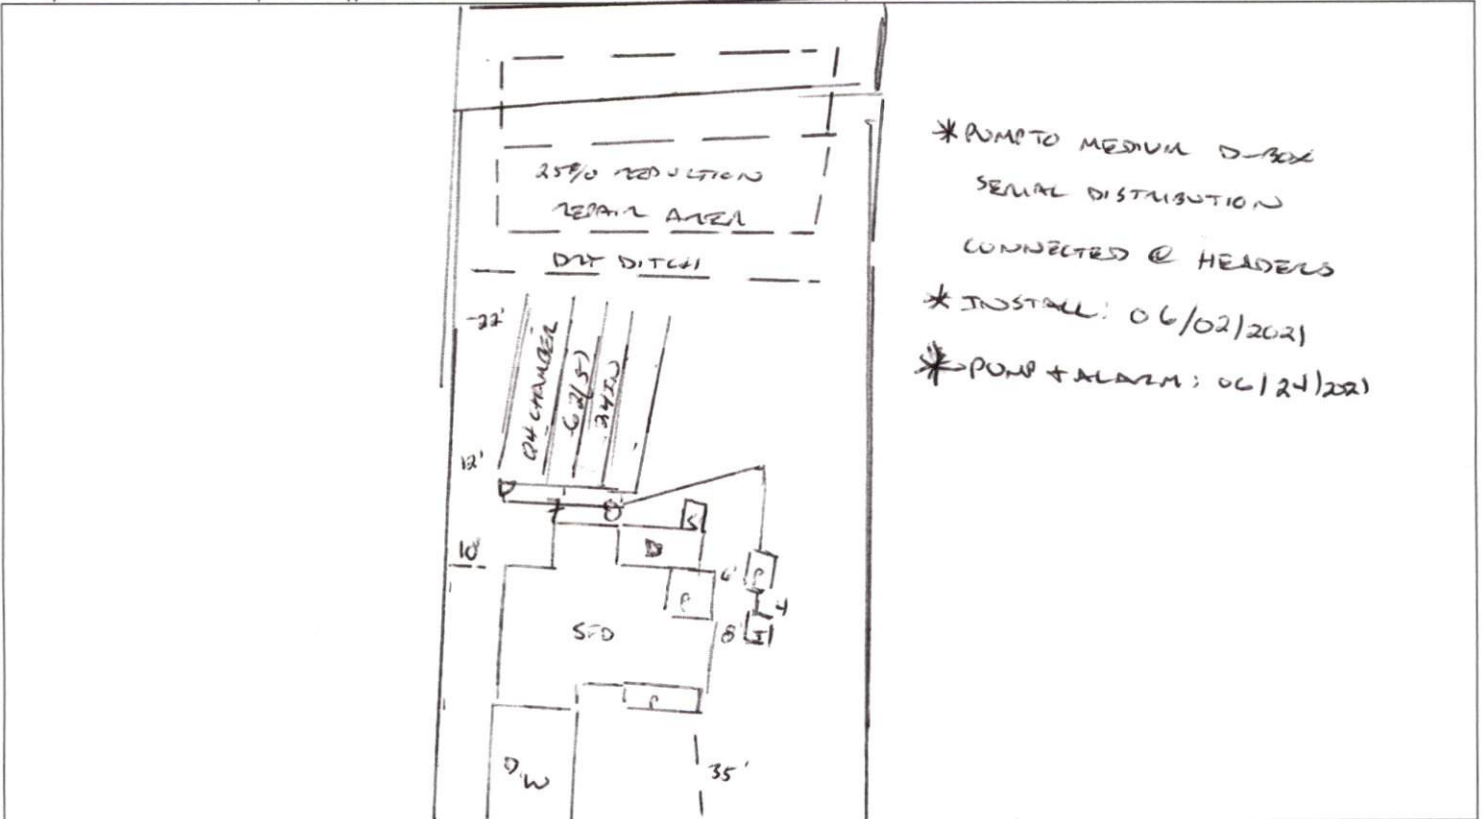 25% REDUCTION
REPAIR AREA
DRY DITCH
22'
Q4 CHAMBER
62(5)
24IN
12'
10'
S
D
P
6'
P
4
8'
T
SFD
P
D/W
35'
* PUMP TO MEDIUM D-BOX
SERIAL DISTRIBUTION
CONNECTED @ HEADERS
* INSTALL: 06/02/2021
* PUMP + ALARM: 06/24/2021